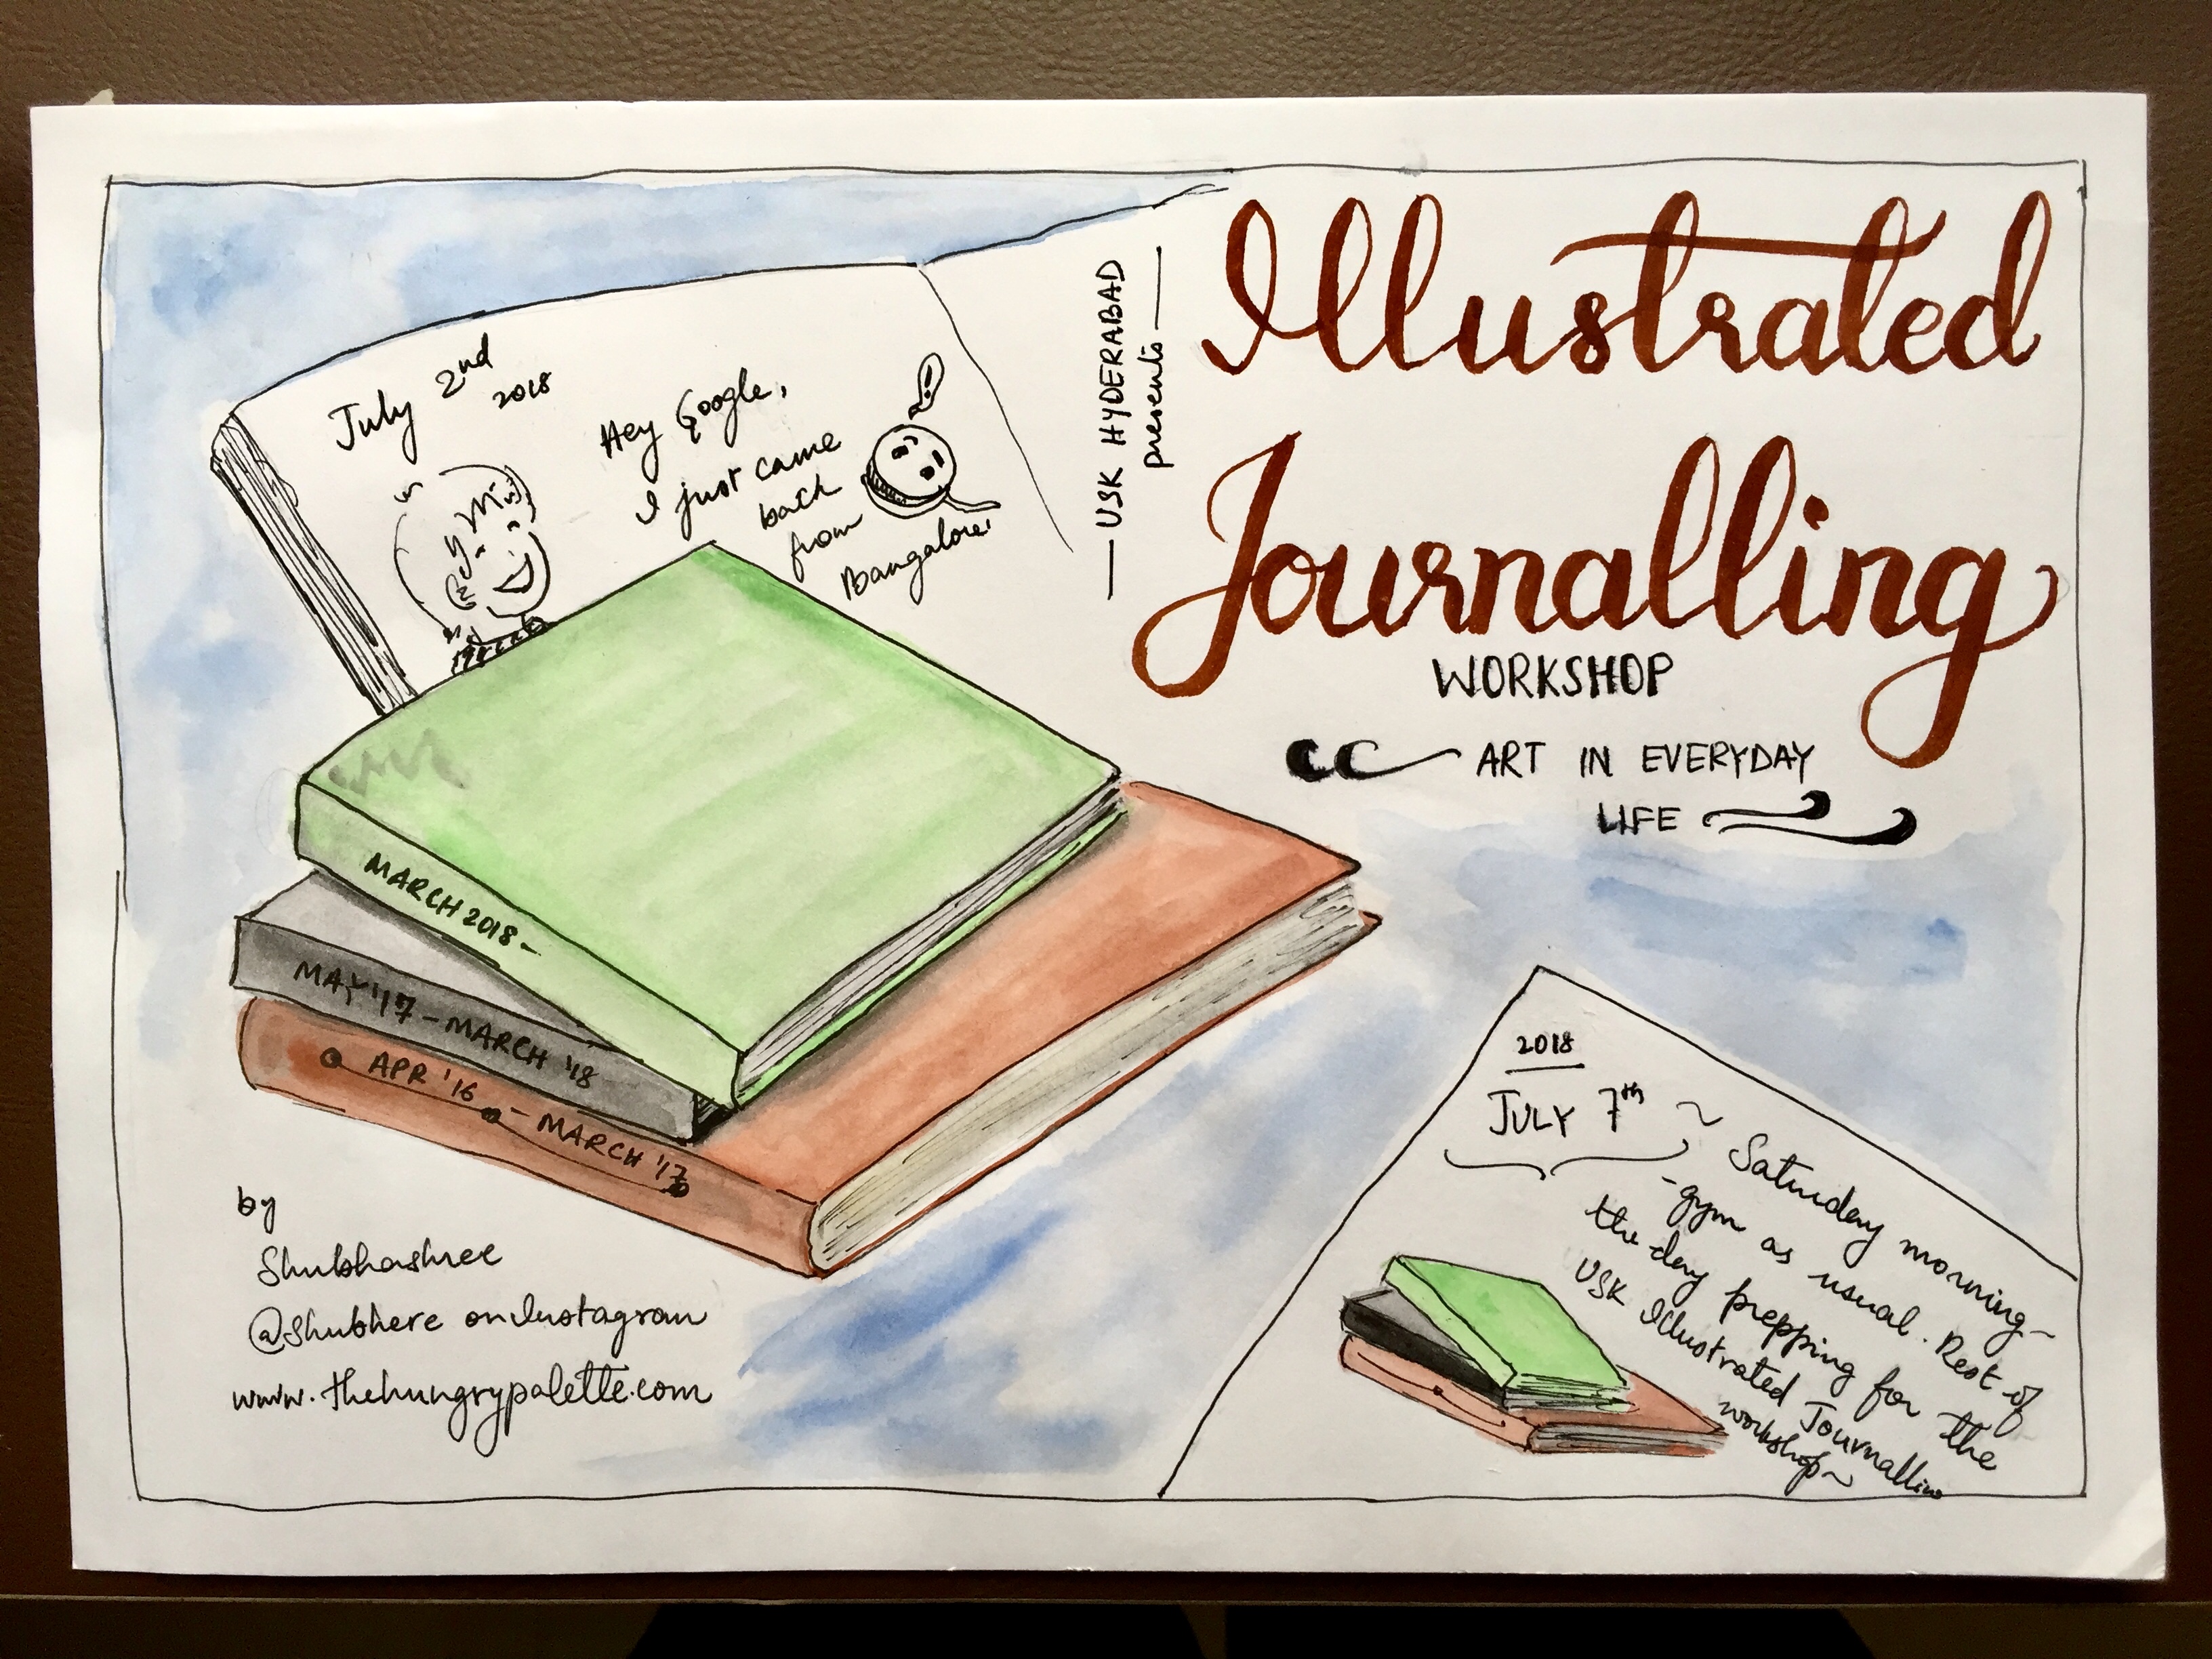 July 2nd
2018
Hey Google,
I just came
back
from
Bangalore!
— USK HYDERABAD —
presents
Illustrated
Journalling
WORKSHOP
ART IN EVERYDAY
LIFE
MARCH 2018 -
MAY '17 - MARCH '18
APR '16 - MARCH '17
by
Shubhashree
@shubhere on Instagram
www.thehungrypalette.com
2018
JULY 7th ~ Saturday morning -
- gym as usual. Rest of
the day prepping for the
USK Illustrated Journallin
workshop ~